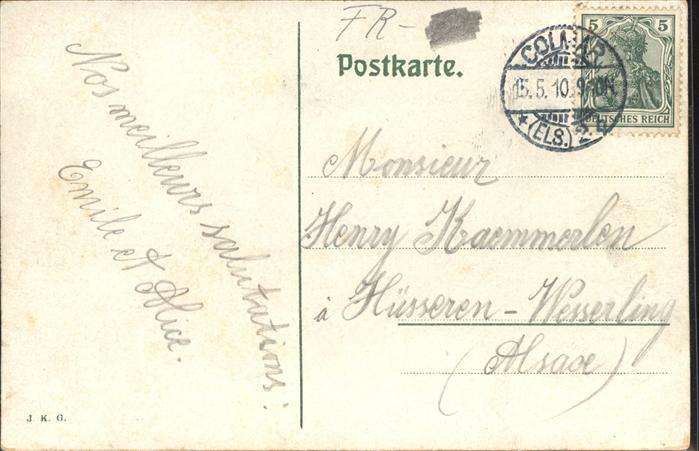 FR-
Postkarte.
COLMAR
15.5.10.9-10V
*(ELS.)
5 5
DEUTSCHES REICH
Nos meilleurs salutations!
Emile et Alice.
Monsieur
Henry Kaemmerlen
à Hüsseren-Wesserling
(Alsace)
J. K. G.